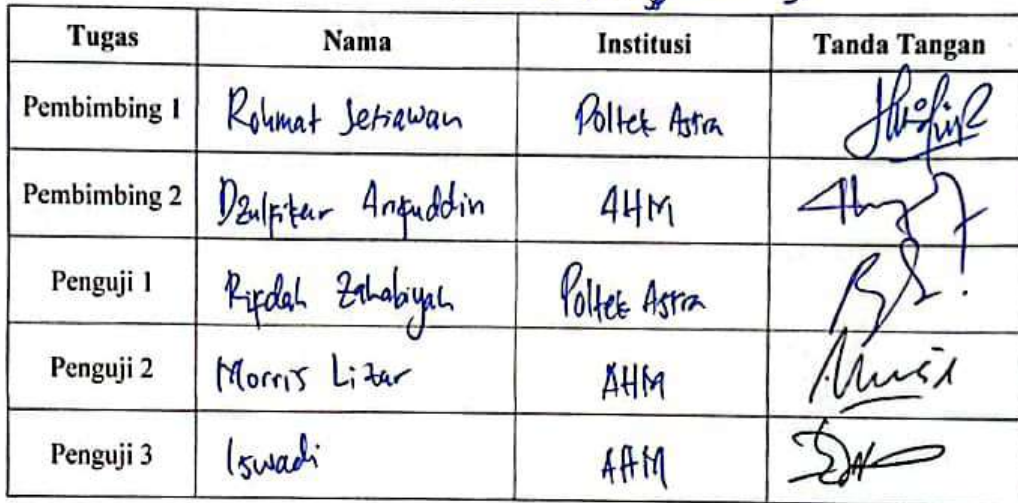 Tugas Nama Institusi Tanda Tangan
Pembimbing 1 Rohmat Setiawan Poltek Astra
Pembimbing 2 Dzulfikar Arifuddin AHM
Penguji 1 Rifdah Zahabiyah Poltek Astra
Penguji 2 Morris Lizar AHM
Penguji 3 Iswadi AHM